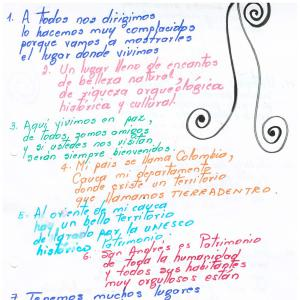 1. A todos nos dirigimos
lo hacemos muy complacidos
porque vamos a mostrarles
el lugar donde vivimos
2. Un lugar lleno de encantos
de belleza natural,
de riqueza arqueológica
histórica y cultural.
3. Aquí vivimos en paz,
de todos somos amigos
y si ustedes nos visitan
serán siempre bienvenidos.
4. Mi país se llama Colombia,
Cauca mi departamento
donde existe un Territorio
que llamamos TIERRADENTRO.
5. Al oriente de mi cauca
hay un bello Territorio
declarado por la UNESCO
histórico Patrimonio.
6. San Andrés es Patrimonio
de toda la humanidad
y todos sus habitantes
muy orgullosos están
7. Tenemos muchos lugares